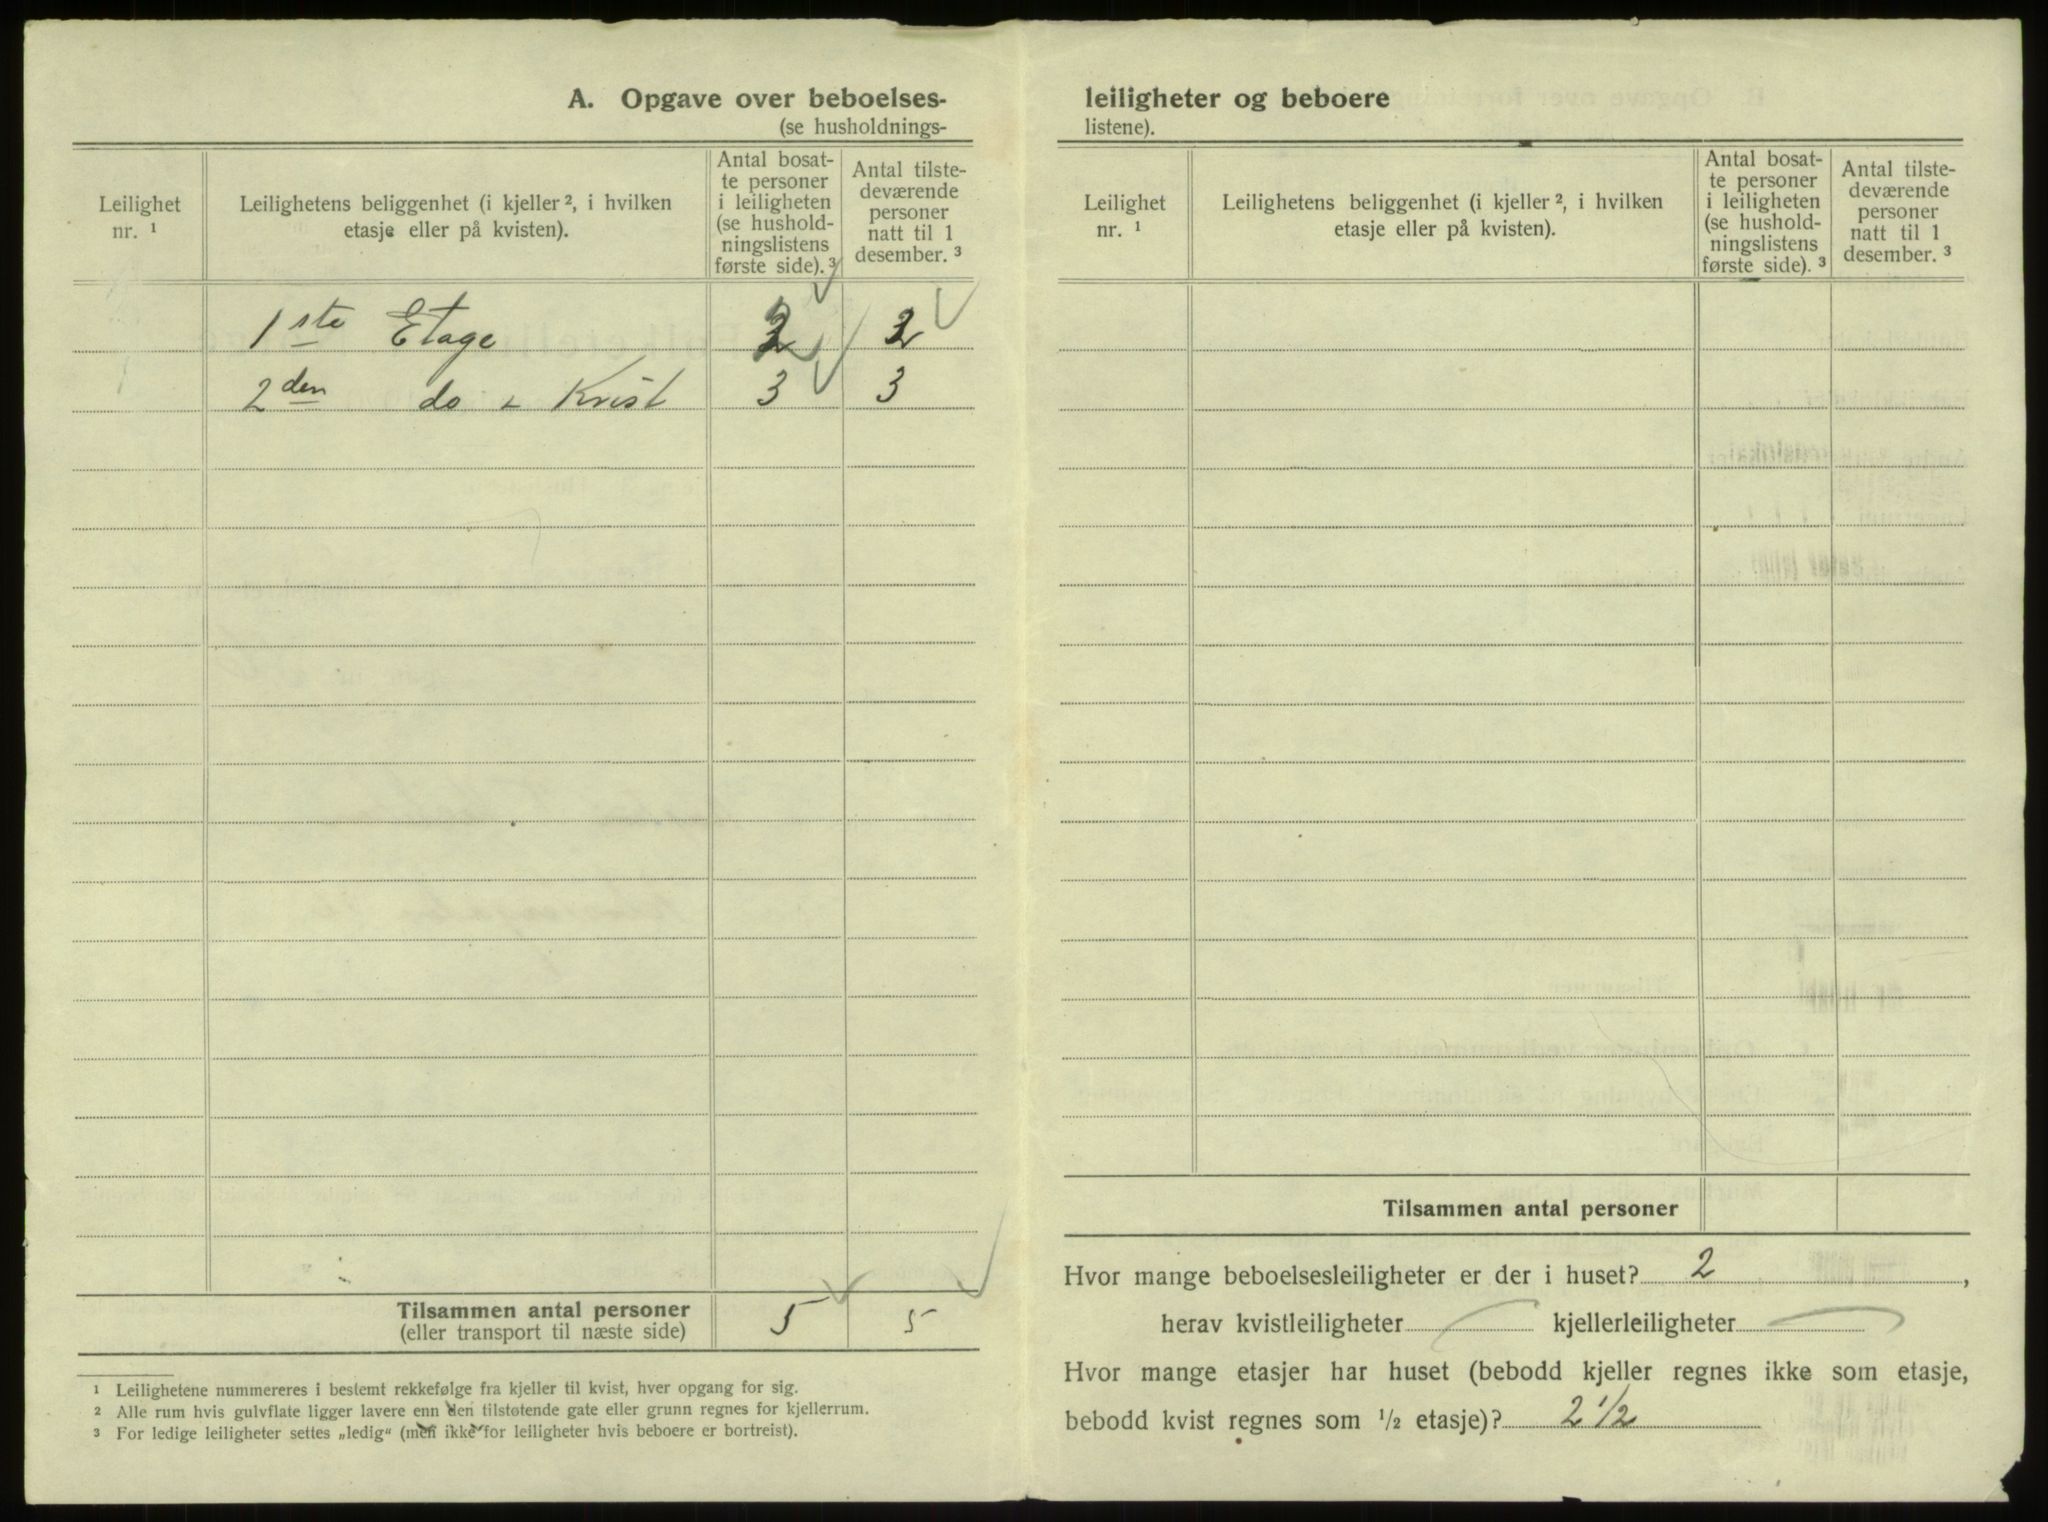 A. Opgave over beboelses-
(se husholdnings-
Leilighet nr. ¹
Leilighetens beliggenhet (i kjeller ², i hvilken etasje eller på kvisten).
Antal bosat-
te personer
i leiligheten
(se hushold-
ningslistens
første side). ³
Antal tilste-
deværende
personer
natt til 1
desember. ³
1ste Etage 2 2
2den do + Kvist 3 3
Tilsammen antal personer 5 5
(eller transport til næste side)
¹ Leilighetene nummereres i bestemt rekkefølge fra kjeller til kvist, hver opgang for sig.
² Alle rum hvis gulvflate ligger lavere enn den tilstøtende gate eller grunn regnes for kjellerrum.
³ For ledige leiligheter settes „ledig“ (men ikke for leiligheter hvis beboere er bortreist).
leiligheter og beboere
listene).
Leilighet nr. ¹
Leilighetens beliggenhet (i kjeller ², i hvilken etasje eller på kvisten).
Antal bosat-
te personer
i leiligheten
(se hushold-
ningslistens
første side). ³
Antal tilste-
deværende
personer
natt til 1
desember. ³
Tilsammen antal personer
Hvor mange beboelsesleiligheter er der i huset? 2,
herav kvistleiligheter kjellerleiligheter
Hvor mange etasjer har huset (bebodd kjeller regnes ikke som etasje,
bebodd kvist regnes som ½ etasje)? 2 ½